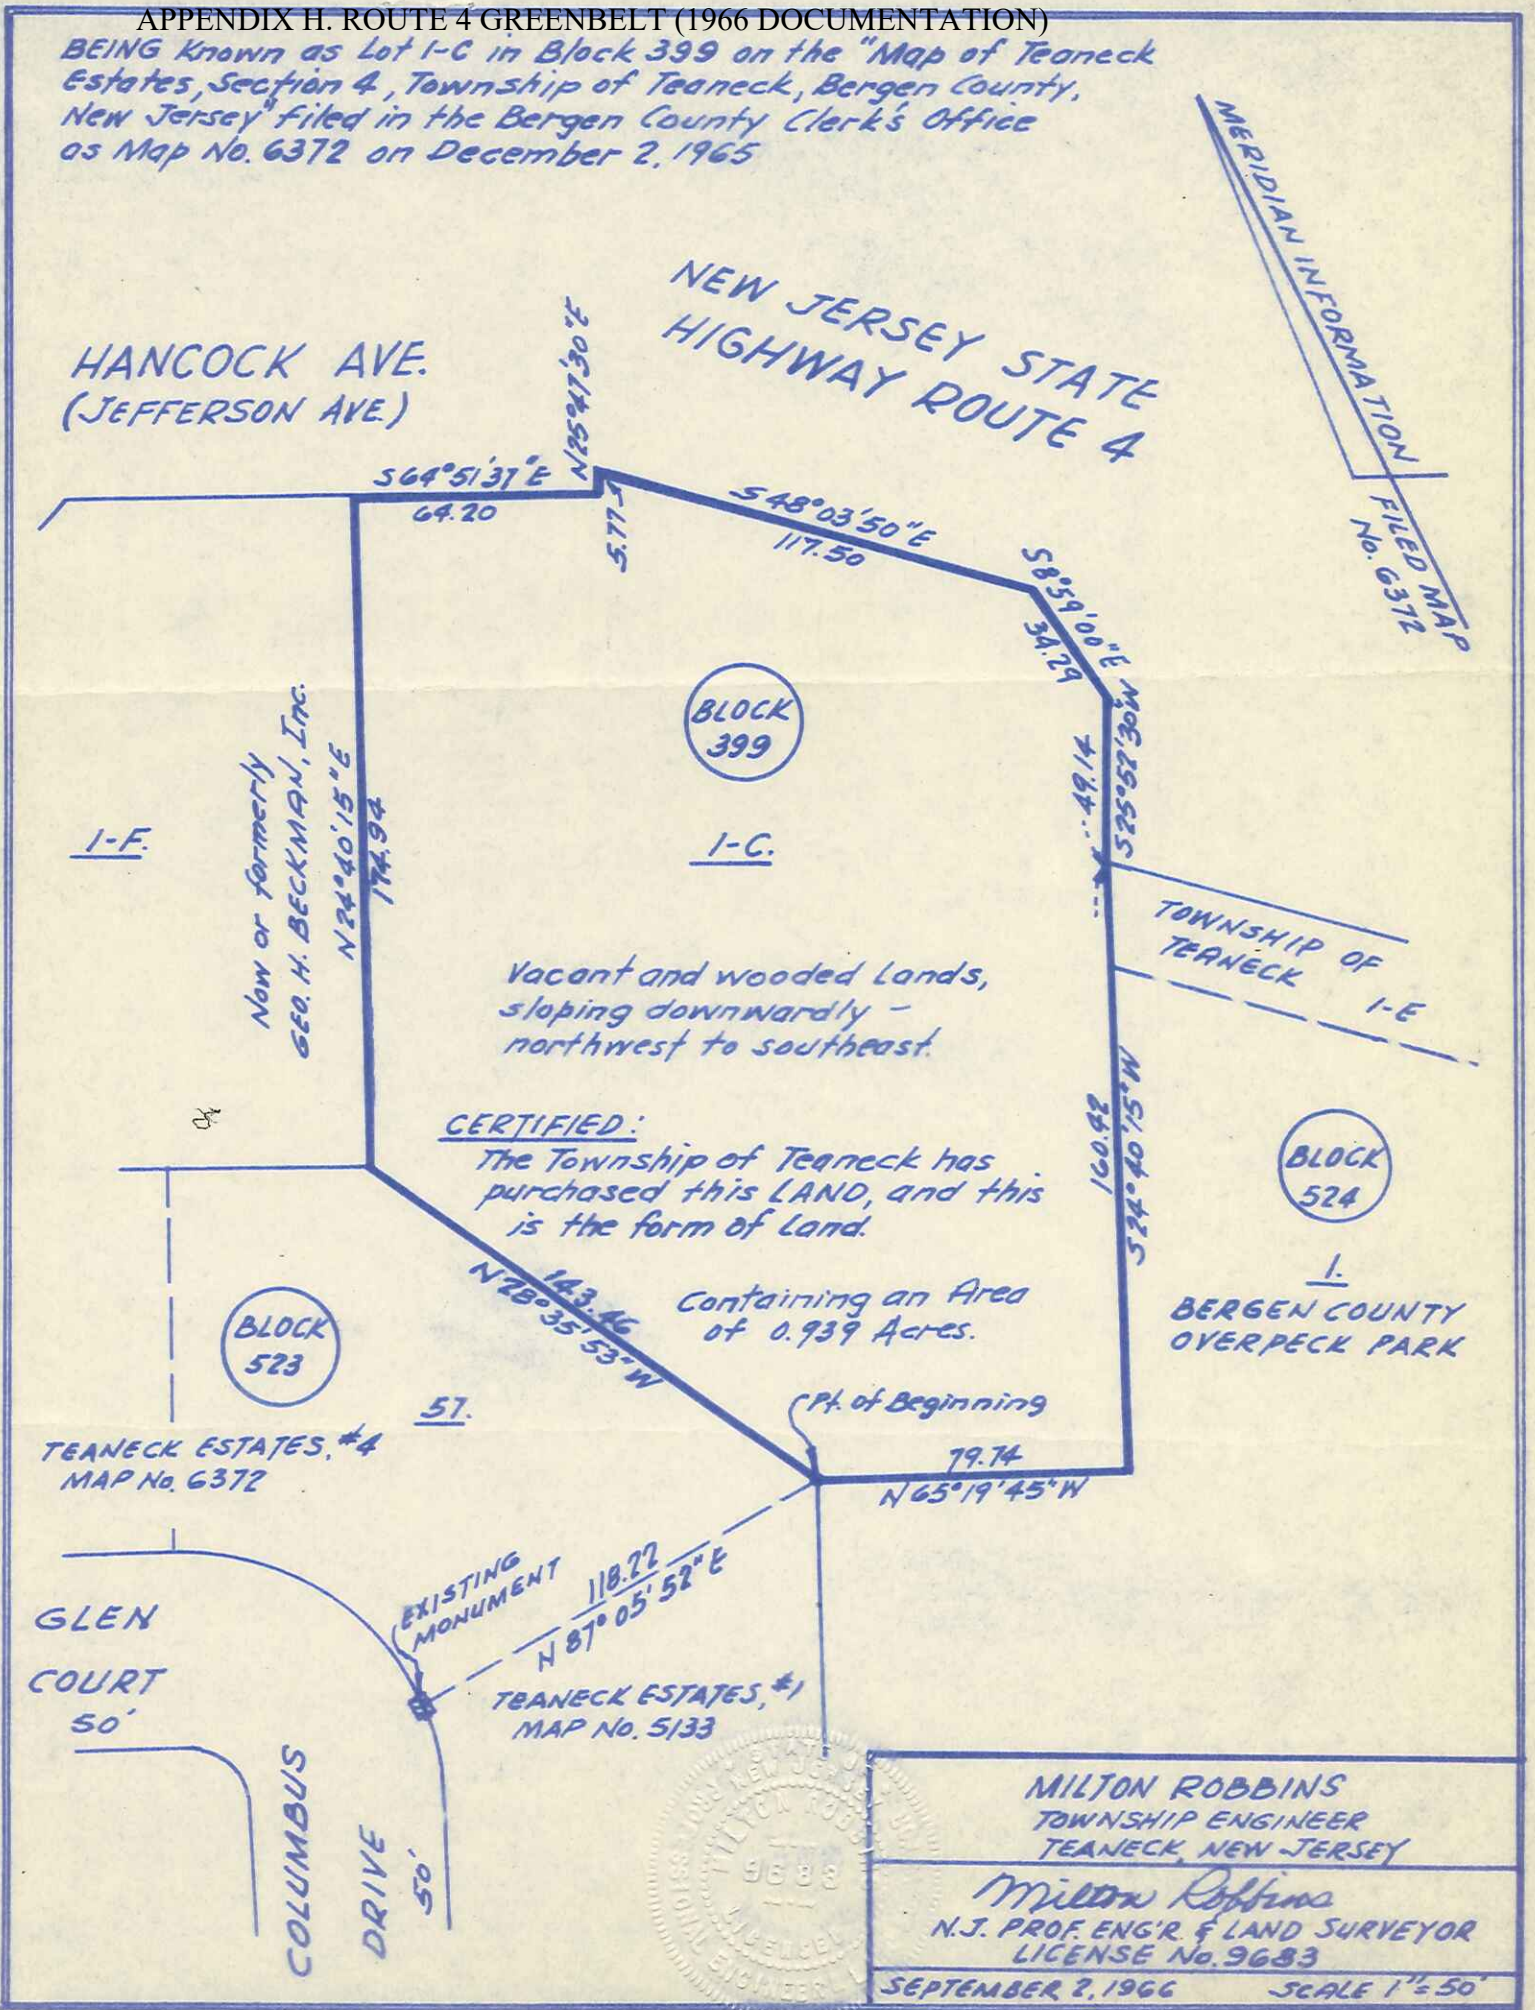 APPENDIX H. ROUTE 4 GREENBELT (1966 DOCUMENTATION)
BEING Known as Lot 1-C in Block 399 on the "Map of Teaneck
Estates, Section 4, Township of Teaneck, Bergen County,
New Jersey" filed in the Bergen County Clerk's Office
as Map No. 6372 on December 2, 1965
MERIDIAN INFORMATION
FILED MAP
No. 6372
NEW JERSEY STATE
HIGHWAY ROUTE 4
HANCOCK AVE.
(JEFFERSON AVE.)
S 64°51'37"E
64.20
N25°47'30"E
5.77
S 48°03'50"E
117.50
S8°59'00"E
34.29
S25°52'30"W
49.14
BLOCK
399
1-C.
1-F.
Now or formerly
GEO. H. BECKMAN, Inc.
N24°40'15"E
174.94
TOWNSHIP OF
TEANECK
1-E
Vacant and wooded Lands,
sloping downwardly -
northwest to southeast.
CERTIFIED:
The Township of Teaneck has
purchased this LAND, and this
is the form of Land.
Containing an Area
of 0.939 Acres.
160.42
S24°40'15"W
BLOCK
524
1.
BERGEN COUNTY
OVERPECK PARK
143.46
N28°35'53"W
BLOCK
523
57.
TEANECK ESTATES, #4
MAP No. 6372
Pt. of Beginning
79.74
N65°19'45"W
EXISTING
MONUMENT
118.22
N 87°05'52"E
TEANECK ESTATES, #1
MAP No. 5133
GLEN
COURT
50'
COLUMBUS
DRIVE
50'
STATE
NEW JERSEY
MILTON ROBBINS
9683
LICENSED
ENGINEER
MILTON ROBBINS
TOWNSHIP ENGINEER
TEANECK, NEW JERSEY
Milton Robbins
N.J. PROF. ENG'R. & LAND SURVEYOR
LICENSE No. 9683
SEPTEMBER 2, 1966 SCALE 1"=50'